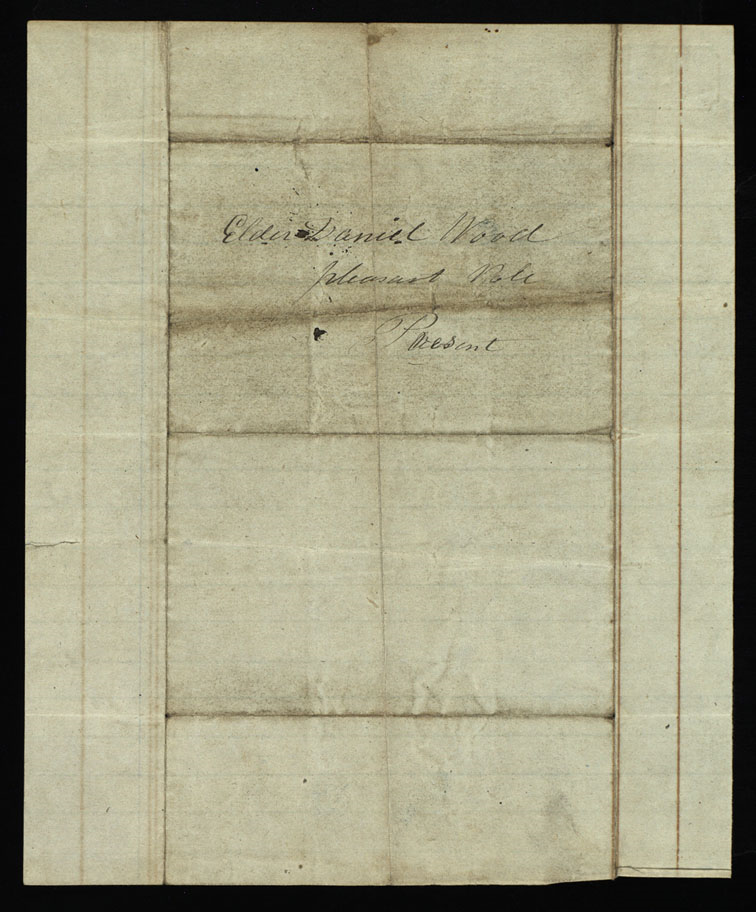 Elder Daniel Wood
pleasant Vale
Present